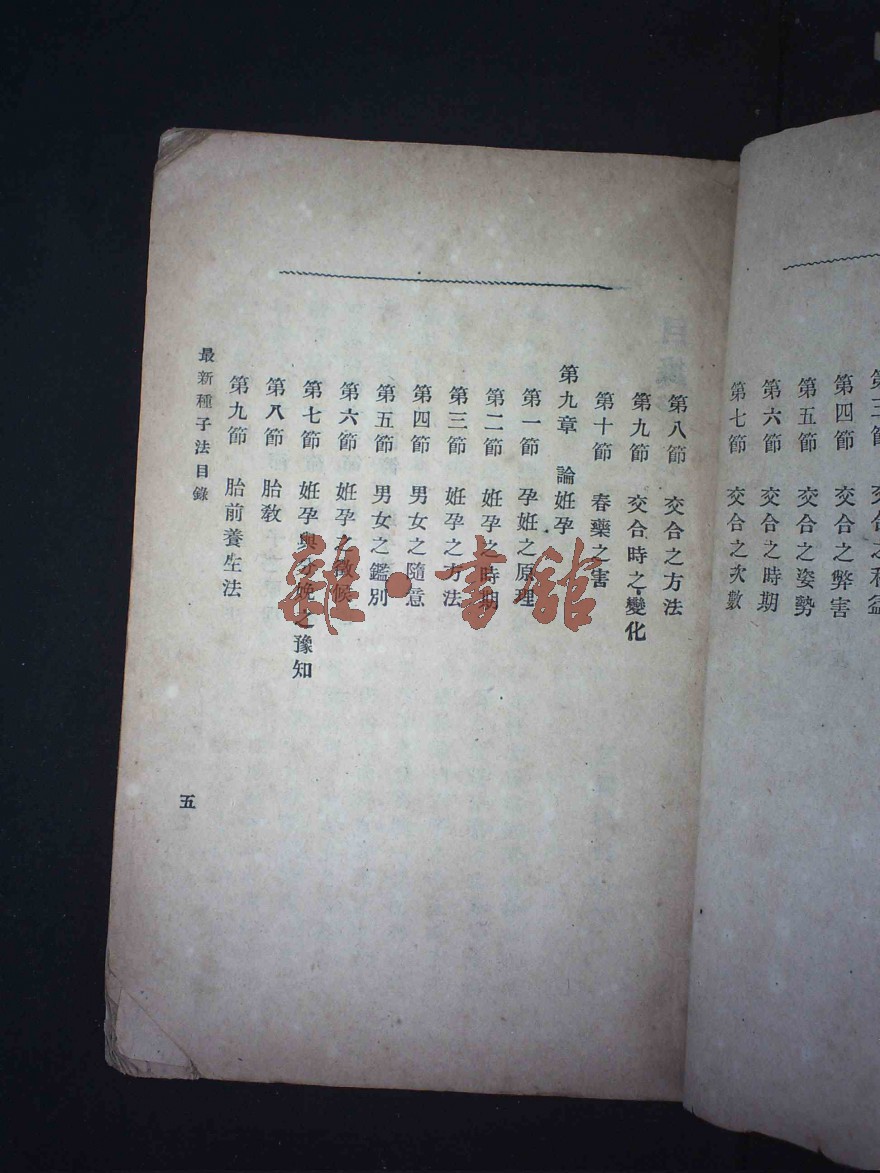 第四節　交合之弊害
第五節　交合之姿勢
第六節　交合之時期
第七節　交合之次數
第八節　交合之方法
第九節　交合時之變化
第十節　春藥之害
第九章　論姙孕
第一節　孕姙之原理
第二節　姙孕之時期
第三節　姙孕之方法
第四節　男女之隨意
第五節　男女之鑑別
第六節　姙孕之徵候
第七節　姙孕與分娩之豫知
第八節　胎教
第九節　胎前養生法
最新種子法目錄
五
雜·書館